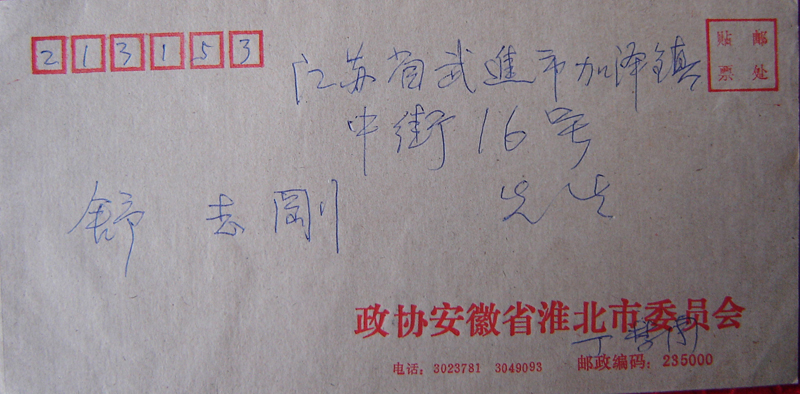 213153
贴 邮
票 处
江苏省武進市加泽镇
中街16号
舒志剛 先生
政协安徽省淮北市委员会
丁
电话：3023781 3049093 邮政编码：235000